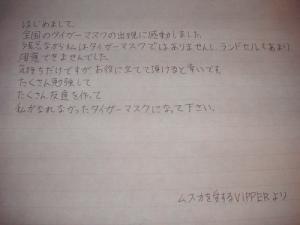 はじめまして。
全国のタイガーマスクの出現に感動しました。
残念ながら私はタイガーマスクではありませんし、ランドセルもあまり
用意できませんでした。
気持ちだけですがお役に立てて頂けると幸いです。
たくさん勉強して
たくさん友達を作って
私がなれなかったタイガーマスクになって下さい。
ムスカを愛するVIPPERより